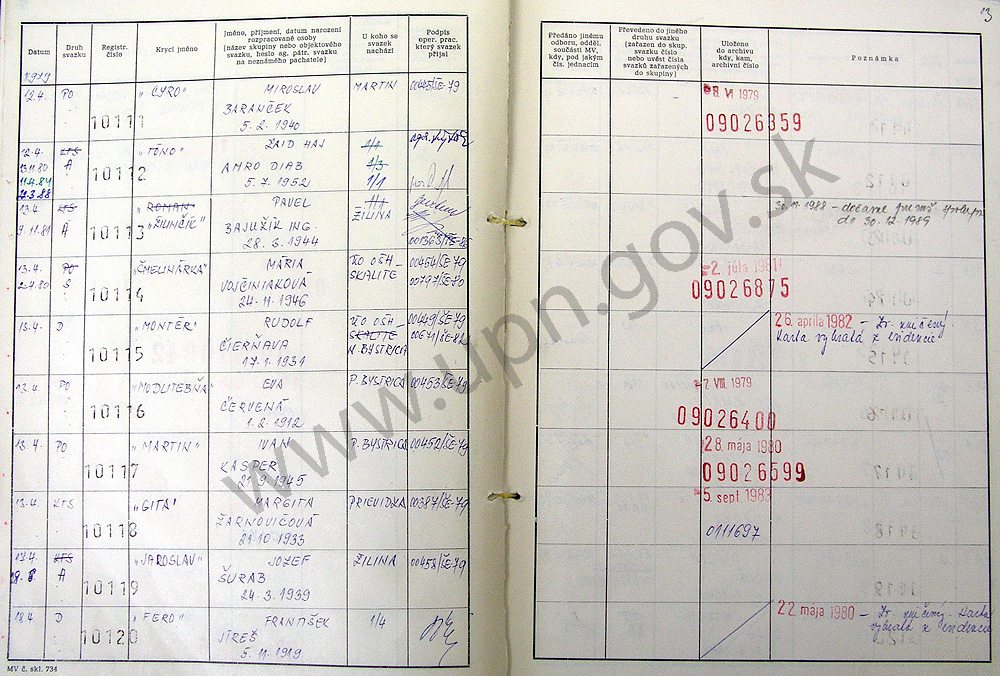 13
Datum
Druh svazku
Registr. číslo
Krycí jméno
Jméno, příjmení, datum narození
rozpracované osoby
(název skupiny nebo objektového
svazku, heslo ag. pátr. svazku
na neznámého pachatele)
U koho se
svazek
nachází
Podpis
oper. prac.
který svazek
přijal
Předáno jinému
odboru, odděl.
součásti MV,
kdy, pod jakým
čís. jednacím
Převedeno do jiného
druhu svazku
(zařazen do skup.
svazku číslo
nebo uvést čísla
svazků zařazených
do skupiny)
Uloženo
do archivu
kdy, kam,
archivní číslo
Poznámka
1979
12.4. PO 10111 "ČYRO" MIROSLAV MARTIN 00445/ŠE-79
BARANČEK
5. 2. 1940
1979
09026359
12.4. KTS 10112 "TÓNO" ZAID HAJ 1/1
13.11.80 A AMRO DIAB 1/3
11.4.84 5. 7. 1952 1/1
7.3.88
13.4. KTS 10113 "ROMAN" PAVEL 1/1
9.11.81 A "ŽILINČÍC" BAJUŽÍK ING. ŽILINA
28. 6. 1944 001363/ŠE-82
30.11.1988 -
do 30.12.1989
13.4. PO 10114 "ČMELINÁRKA" MÁRIA VO OŠH- 00454/ŠE-79
2.7.80 S VOJČINIAKOVÁ SKALITE 00797/ŠE-80
24.11.1946
2. júla 1981
09026875
13.4. D 10115 "MONTÉR" RUDOLF VO OŠH 00449/ŠE-79
ČIERŇAVA SKALITE 00671/ŠE-82
17.1.1931 N. BYSTRICA
26. apríla 1982 - Zv. zničený.
Karta vybratá z evidencie
13.4. PO 10116 "MODLITEBŇA" EVA P. BYSTRICA 00453/ŠE-79
ČERVENÁ
1. 2. 1912
7. VIII. 1979
09026400
13.4. PO 10117 "MARTIN" IVAN P. BYSTRICA 00452/ŠE-79
KASPER
21.9.1945
28. mája 1980
09026599
13.4. KTS 10118 "GITA" MARGITA PRIEVIDZA 00387/ŠE-79
ŽARNOVICOVÁ
21.10.1933
5. sept. 1983
0111697
17.4. KTS 10119 "JAROSLAV" JOZEF ŽILINA 00458/ŠE-79
A ŠURAB
24.3.1939
18.4. D 10120 "FERO" FRANTIŠEK 1/4
JIREŠ
5. 11. 1919
22. mája 1980 - Zv. zničený. Karta
vybratá z evidencie
MV č. skl. 734
www.upn.gov.sk